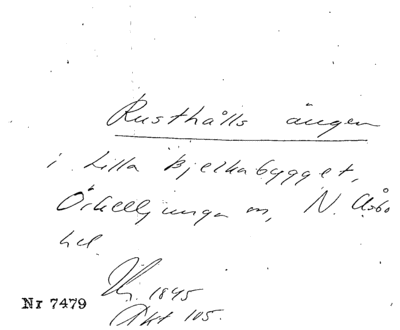 Rusthålls ängen
i Lilla Bjelkabygget,
Örkelljunga sn, N. Åsbo
hd.
1845
Nr 7479
Akt 105.